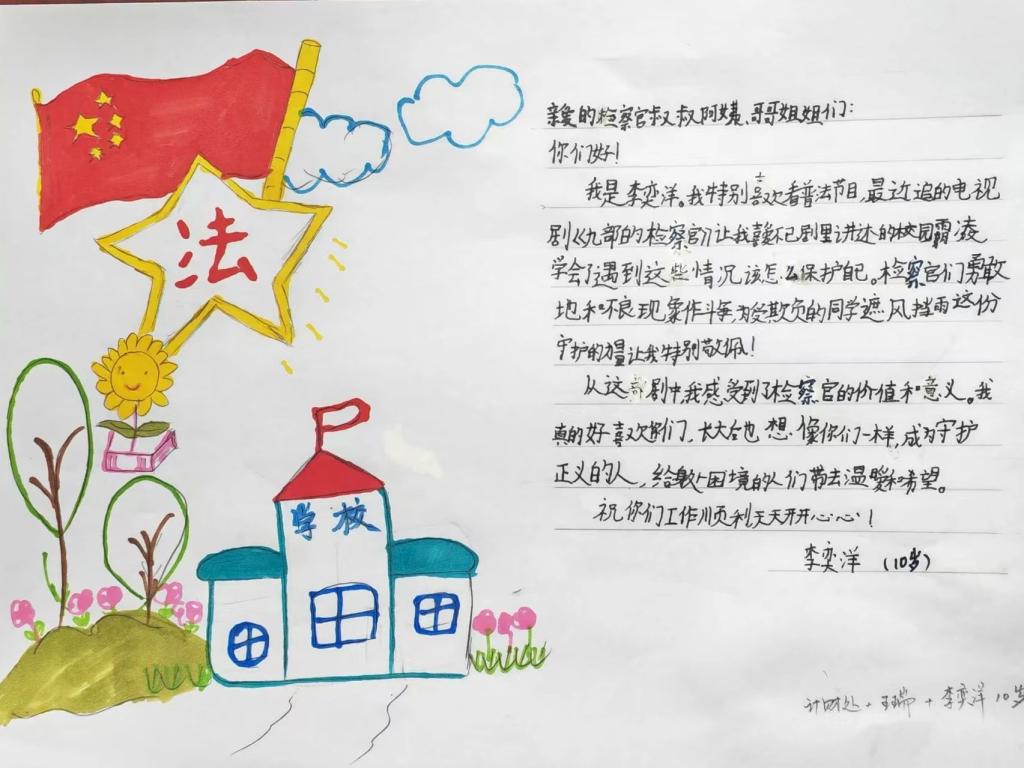 法
学校
亲爱的检察官叔叔阿姨、哥哥姐姐们：
你们好！
我是李奕洋。我特别喜欢看普法节目，最近追的电视
剧《九部的检察官》让我喜爱不已剧里讲述的校园霸凌
学会了遇到这些情况该怎么保护自己。检察官们勇敢
地和不良现象作斗争，为受欺负的同学遮风挡雨这份
守护的力量让我特别敬佩！
从这部剧中，我感受到了检察官的价值和意义。我
真的好喜欢你们，长大后也想像你们一样，成为守护
正义的人，给敏上困境的人们带去温暖和希望。
祝你们工作顺利天天开开心心！
李奕洋（10岁）
计财处+王瑞+李奕洋10岁